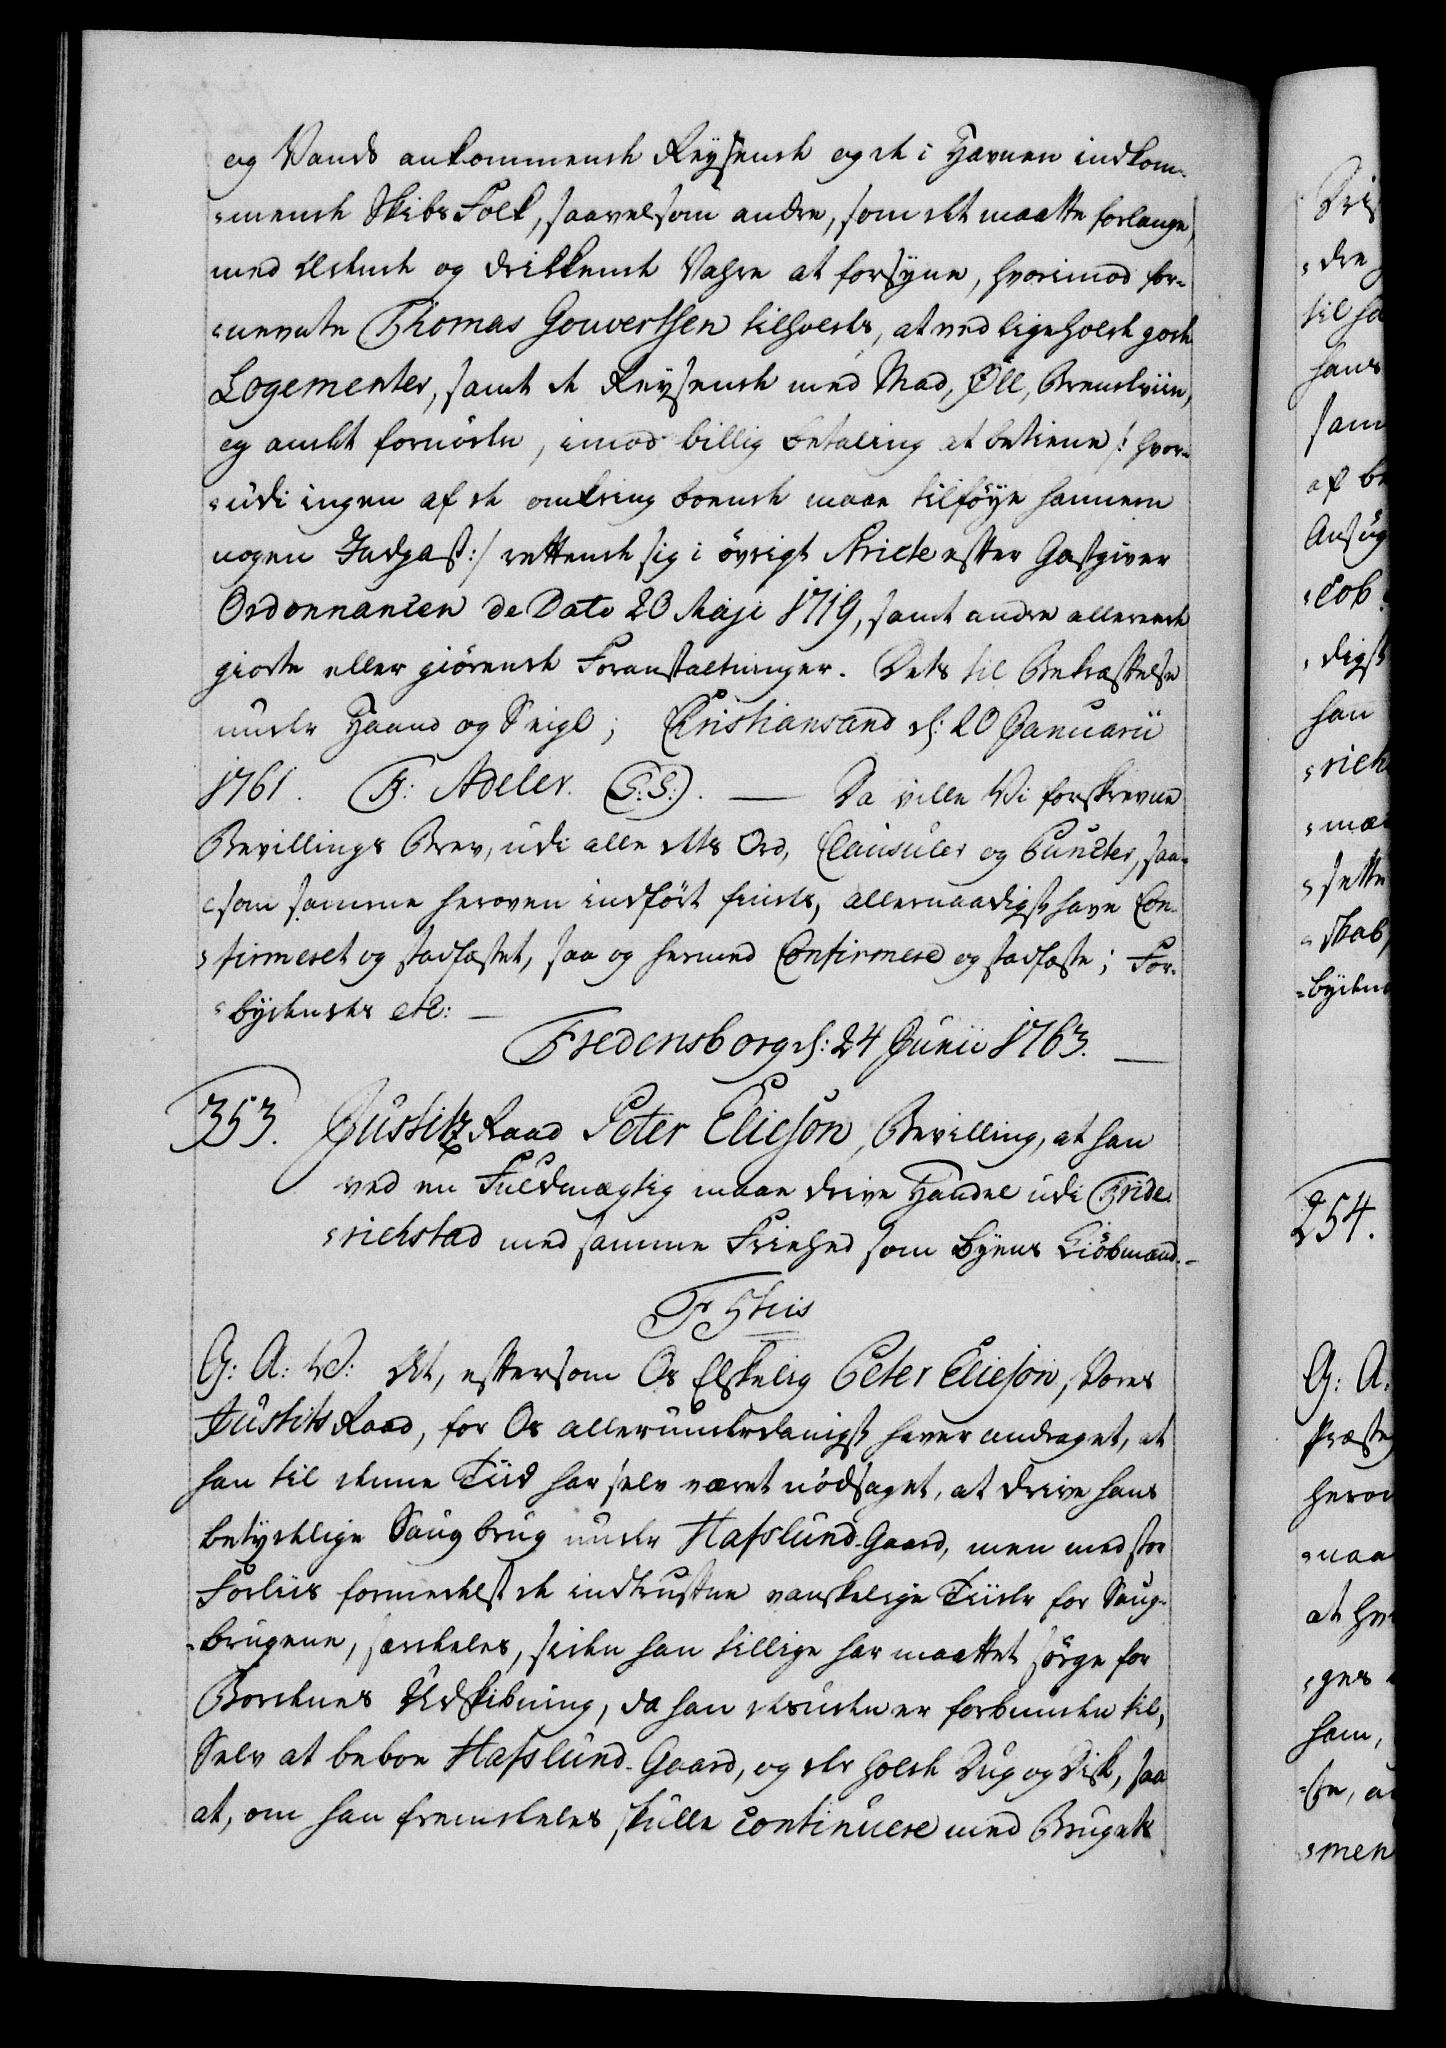 og Vands ankommende Reysende og de i Havnen indkom-
-mende Skibs Folk, saavelsom andre, som det maatte forlange,
med Ædende og drikkende Vahre at forsyne, hvorimod for-
-nevnte Thomas Gouvertsen tilholdes, at ved lige holde gode
Logementer, samt de Reysende med Mad, Øll, Brendeviin,
og andet fornöden, imod billig betaling at betiene /: hvor-
-udi ingen af de omkring boende maae tilföye hannem
nogen Indpas :/ rettende sig i övrigt Stricte efter Gastgiver
Ordonnancen de Dato 23 Maji 1719, samt andre allerede
giorte eller giörende Foranstaltninger. Dets til Bekræftelse
under Haand og Seigl; Christiansand d: 20 Januarii
1761. F: Adeler. (L:S:). — Da ville Vi forskrevne
Bevillings Brev, udi alle dets Ord, Clausuler og Puncter, saa-
-som samme heroven indfört findes, allernaadigst have Con-
-firmeret og stadfæstet, saa og hermed Confirmere og stadfæste; For-
-bydendes etc: —
Fredensborg d: 24 Junii 1763. —
353. Justitz Raad Peter Elieson, Bevilling, at han
ved en Fuldmægtig maae drive Handel udi Fride-
-richstad med samme Friehed som Byens Kiöbmænd. -
Fr 5tus
G: A: V: At, eftersom Os Elskelig Peter Elieson, Vores
Justits Raad, for Os allerunderdanigst haver andraget, at
han til denne Tiid har selv været nödsaget, at drive hans
betydelige Saugbrug under Hafslund-Gaard, men med stor
Forliis formedelst de indtrufne vanskelige Tiider for Saug-
-brugene, særdeles, siden han tillige har maattet sörge for
Bordenes Udskibning, da han desuden er forbunden til,
Selv at beboe Hafslund-Gaard, og der holde Dug og Disk, saa
at, om han fremdeles skulle continuere med Brugets
Dris
-dre
til ha
hans
sam
af be
Ansög
-cob
-digst
han
-rick
-mæ
-sette
-skab,
-byden
254.
G: A.
Præste
herov
-naa
at he
-ges
ham,
-se, a
-men